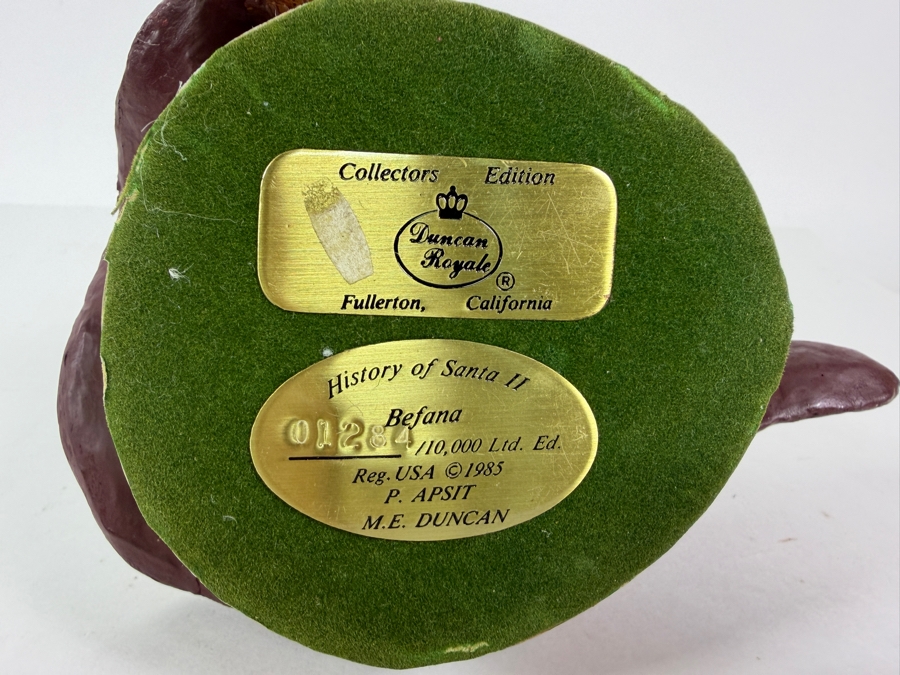 Collectors Edition
Duncan
Royale ®
Fullerton, California
History of Santa II
Befana
01284 /10,000 Ltd. Ed.
Reg. USA ©1985
P. APSIT
M.E. DUNCAN